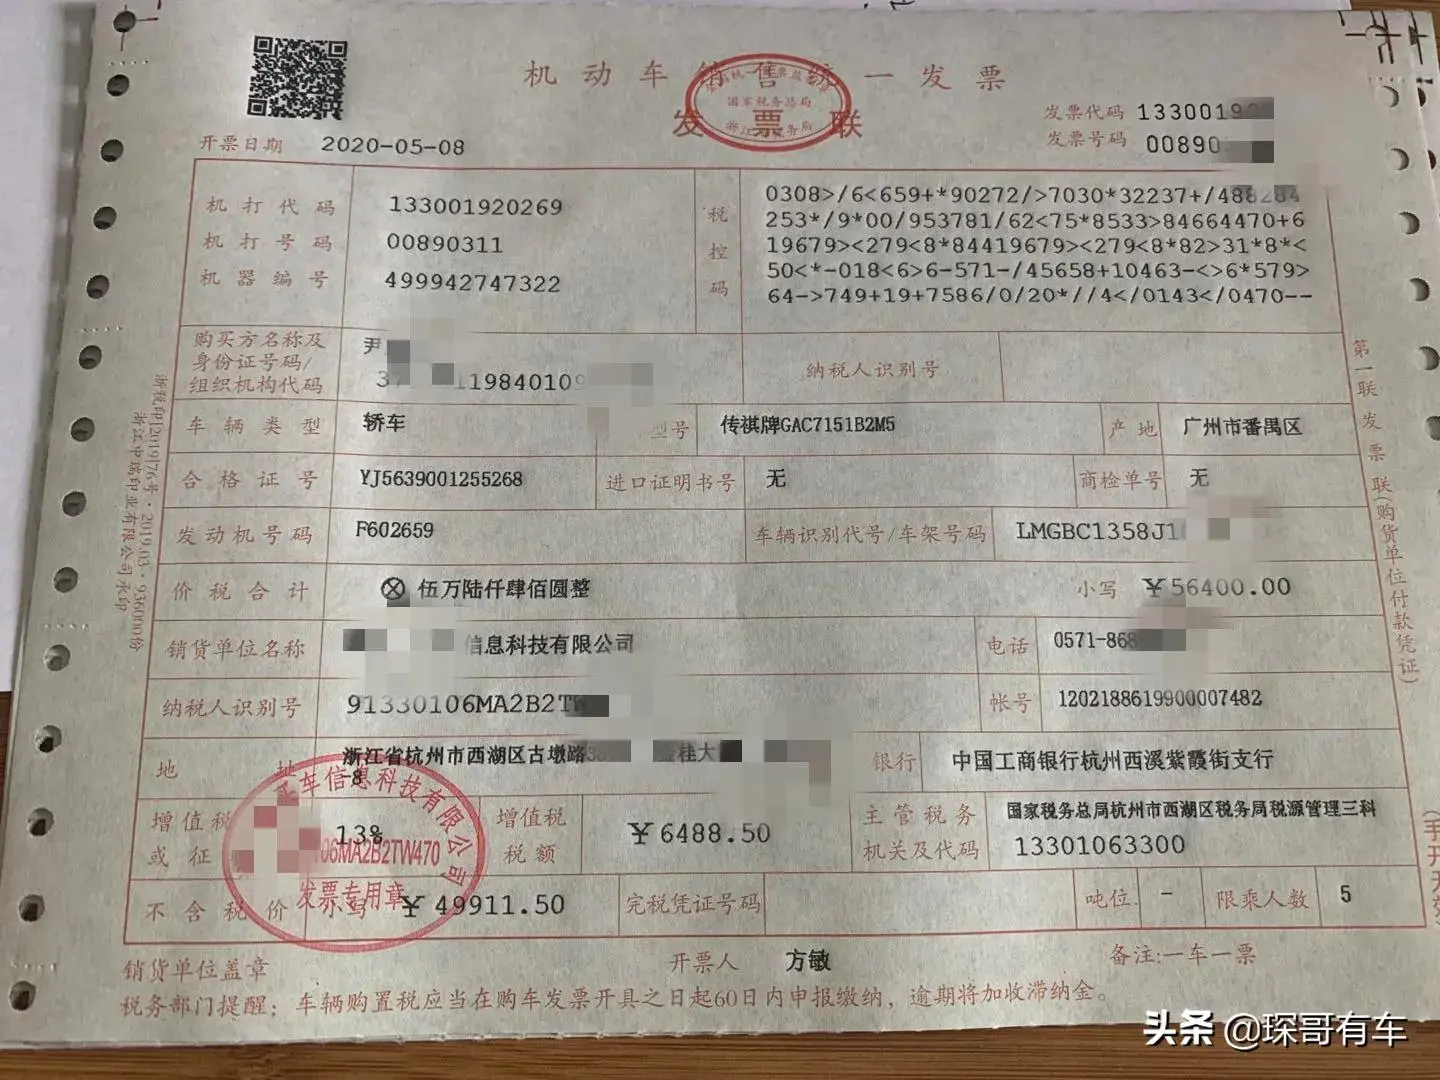 机动车销售统一发票
发票联
国家税务总局
开票日期 2020-05-08
发票代码 1330019
发票号码 00890
机打代码 133001920269
机打号码 00890311
机器编号 499942747322
税控码
0308>/6<659+*90272/>7030*32237+/488284
253*/9*00/953781/62<75*8533>84664470+6
19679><279<8*84419679><279<8*82>31*8*<
50<*-018<6>6-571-/45658+10463-<>6*579>
64->749+19+7586/0/20*//4</0143</0470--
购买方名称及身份证号码/组织机构代码
尹
119840109
纳税人识别号
车辆类型 轿车 型号 传祺牌GAC7151B2M5 产地 广州市番禺区
合格证号 YJ5639001255268 进口证明书号 无 商检单号 无
发动机号码 F602659 车辆识别代号/车架号码 LMGBC1358J1
价税合计 ⊗伍万陆仟肆佰圆整 小写 ￥56400.00
销货单位名称 信息科技有限公司 电话 0571-868
纳税人识别号 91330106MA2B2TW 帐号 1202188619900007482
地址 浙江省杭州市西湖区古墩路 金桂大
-8
银行 中国工商银行杭州西溪紫霞街支行
增值税 或征 13% 增值税税额 ￥6488.50 主管税务机关及代码 国家税务总局杭州市西湖区税务局税源管理三科
13301063300
不含税价 小写 ￥49911.50 完税凭证号码 吨位 - 限乘人数 5
车信息科技有限公司
106MA2B2TW470
发票专用章
销货单位盖章 开票人 方敏 备注:一车一票
税务部门提醒：车辆购置税应当在购车发票开具之日起60日内申报缴纳，逾期将加收滞纳金。
第一联 发票联(购货单位付款凭证)
(手开无效)
浙税印[2019]76号·2019.03·936000份
头条 @琛哥有车